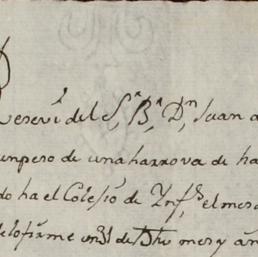 Recevi del S.r B.r D.n Juan
un peso de una harrova de ha
do ha el Colegio de Ynf.s el mes
de lo firme en 31 de dho mes y añ